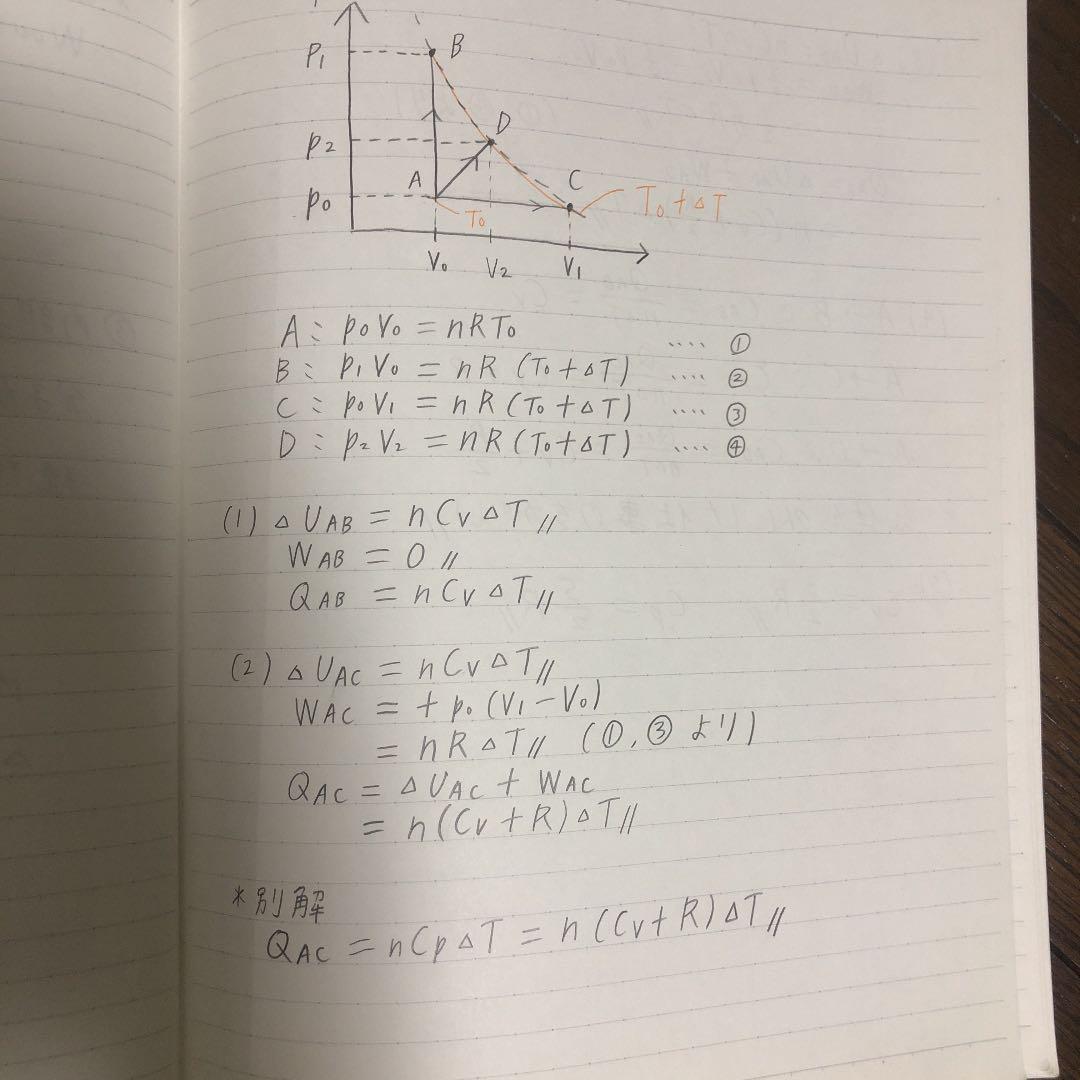 P₁
B
P₂
D
A
C
P₀
T₀
T₀+ΔT
V₀
V₂
V₁
A : P₀V₀ = nRT₀ ‥‥ ①
B : P₁V₀ = nR (T₀+ΔT) ‥‥ ②
C : P₀V₁ = nR (T₀+ΔT) ‥‥ ③
D : P₂V₂ = nR (T₀+ΔT) ‥‥ ④
(1) ΔU_AB = nCvΔT //
W_AB = 0 //
Q_AB = nCvΔT //
(2) ΔU_AC = nCvΔT //
W_AC = + P₀ (V₁-V₀)
= nRΔT // (①, ③ より)
Q_AC = ΔU_AC + W_AC
= n(Cv+R)ΔT //
*別解
Q_AC = nCpΔT = n(Cv+R)ΔT //